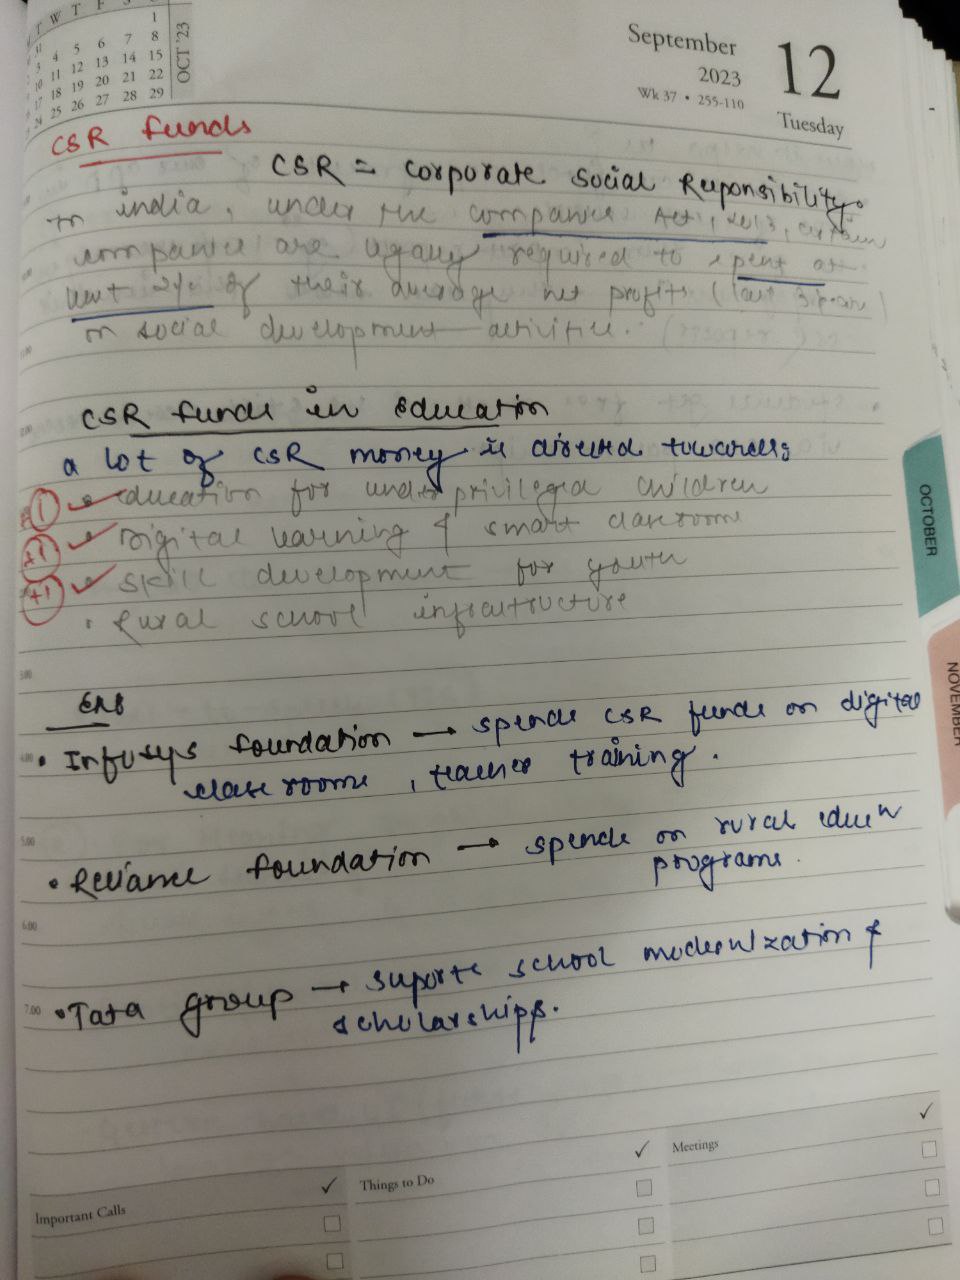 T W T F
1
4 5 6 7 8
10 11 12 13 14 15
17 18 19 20 21 22
24 25 26 27 28 29
OCT '23
September
2023
Wk 37 • 255-110
12
Tuesday
CSR funds
CSR = corporate social Responsibility.
In india, under the companies Act, 2013, certain
companies are legally required to spent at
least 2% of their average net profits (last 3 years)
on social development activities.
CSR funds in education
a lot of CSR money is directed towards:
1 ✓ • education for under privileged children
+1 ✓ • Digital learning & smart classrooms
+1 ✓ • skill development for youth
• Rural school infrastructure
• Infosys foundation → spends CSR funds on digital
classrooms, teacher training.
• Reliance foundation → spends on rural educn
programs.
• Tata group → suports school modernization &
scholarships.
OCTOBER
NOVEMBER
3.00
4.00
5.00
6.00
7.00
Important Calls ✓
Things to Do ✓
Meetings ✓